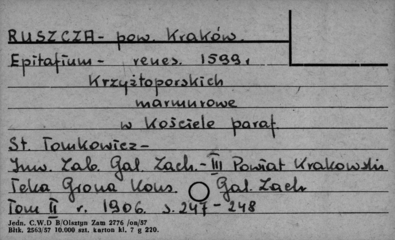 RUSZCZA - pow. Kraków.
Epitafium - renes. 1599.
Krzyżtoporskich
marmurowe
w Kościele paraf.
St. Tomkowicz -
Inw. Zab. Gal. Zach. - III Powiat Krakowski
Teka Grona Kons. Gal. Zach
Tom II r. 1906. s. 247 - 248
Jedn. C.W.D B/Olsztyn Zam 2776 /on/57
Błtk. 2563/57 10.000 szt. karton kl. 7 g 220.